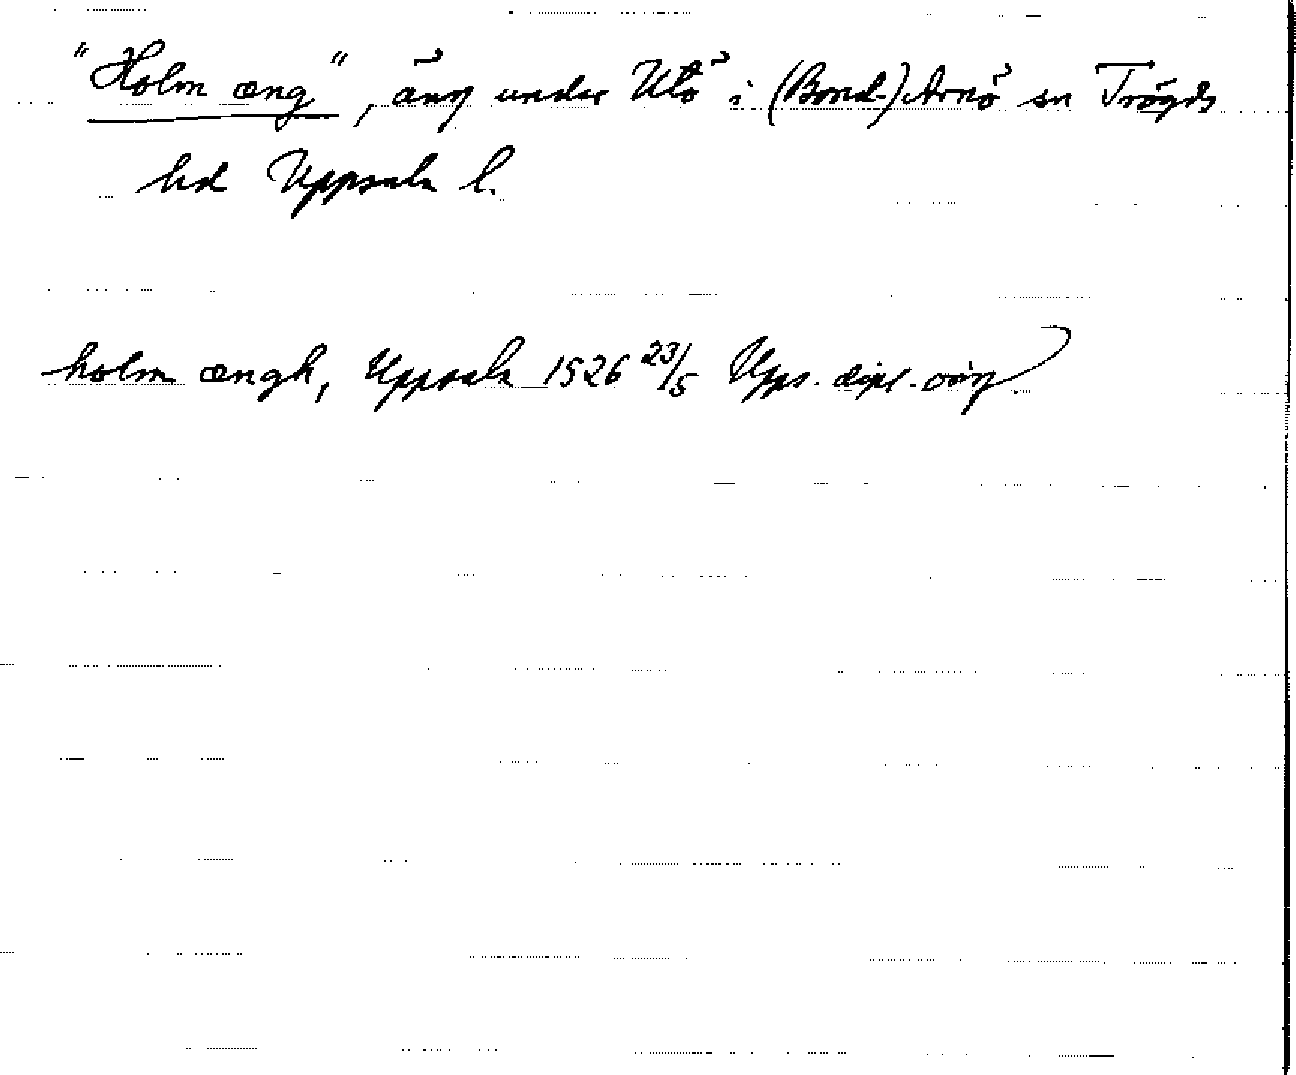 "Holm æng", äng under Utö i (Bond-)Arnö sn Trögds
hd Uppsala l.
holm ængh, Uppsala 1526 23/5 Upps. dipl. orig